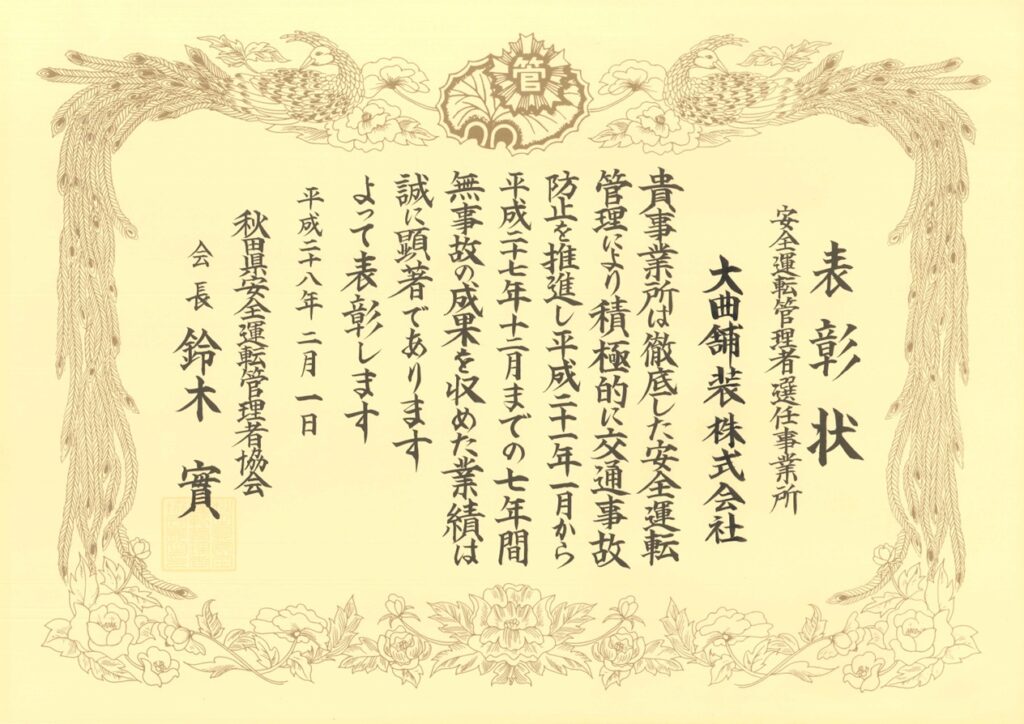 管
表彰状
安全運転管理者選任事業所
大曲舗装株式会社
貴事業所は徹底した安全運転
管理により積極的に交通事故
防止を推進し平成二十一年一月から
平成二十七年十二月までの七年間
無事故の成果を収めた業績は
誠に顕著であります
よって表彰します
平成二十八年二月一日
秋田県安全運転管理者協会
会長 鈴木 實